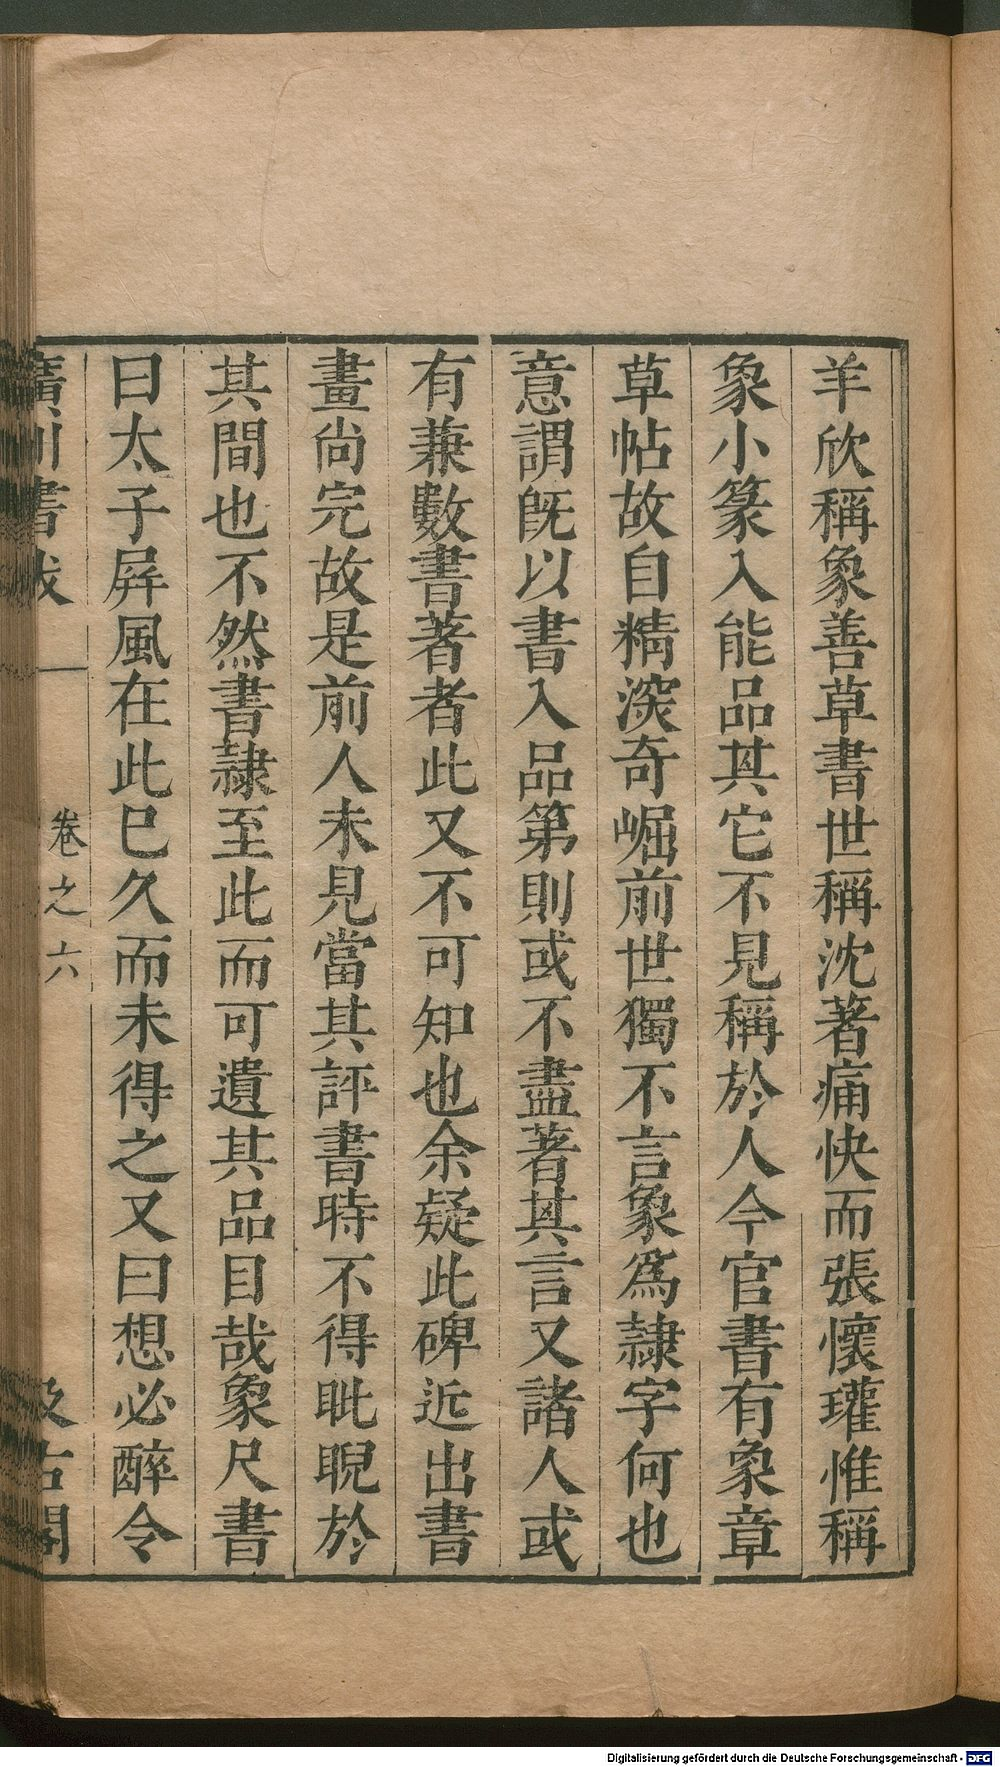 羊欣稱象善草書世稱沈著痛快而張懷瓘惟稱
象小篆入能品其它不見稱於人今官書有象章
草帖故自精深奇崛前世獨不言象爲隷字何也
意謂旣以書入品第則或不盡著其言又諸人或
有兼數書著者此又不可知也余疑此碑近出書
畫尚完故是前人未見當其評書時不得眦睨於
其間也不然書隷至此而可遺其品目哉象尺書
曰太子屛風在此巳久而未得之又曰想必醉令
廣川書跋 卷之六 汲古閣
Digitalisierung gefördert durch die Deutsche Forschungsgemeinschaft - DFG